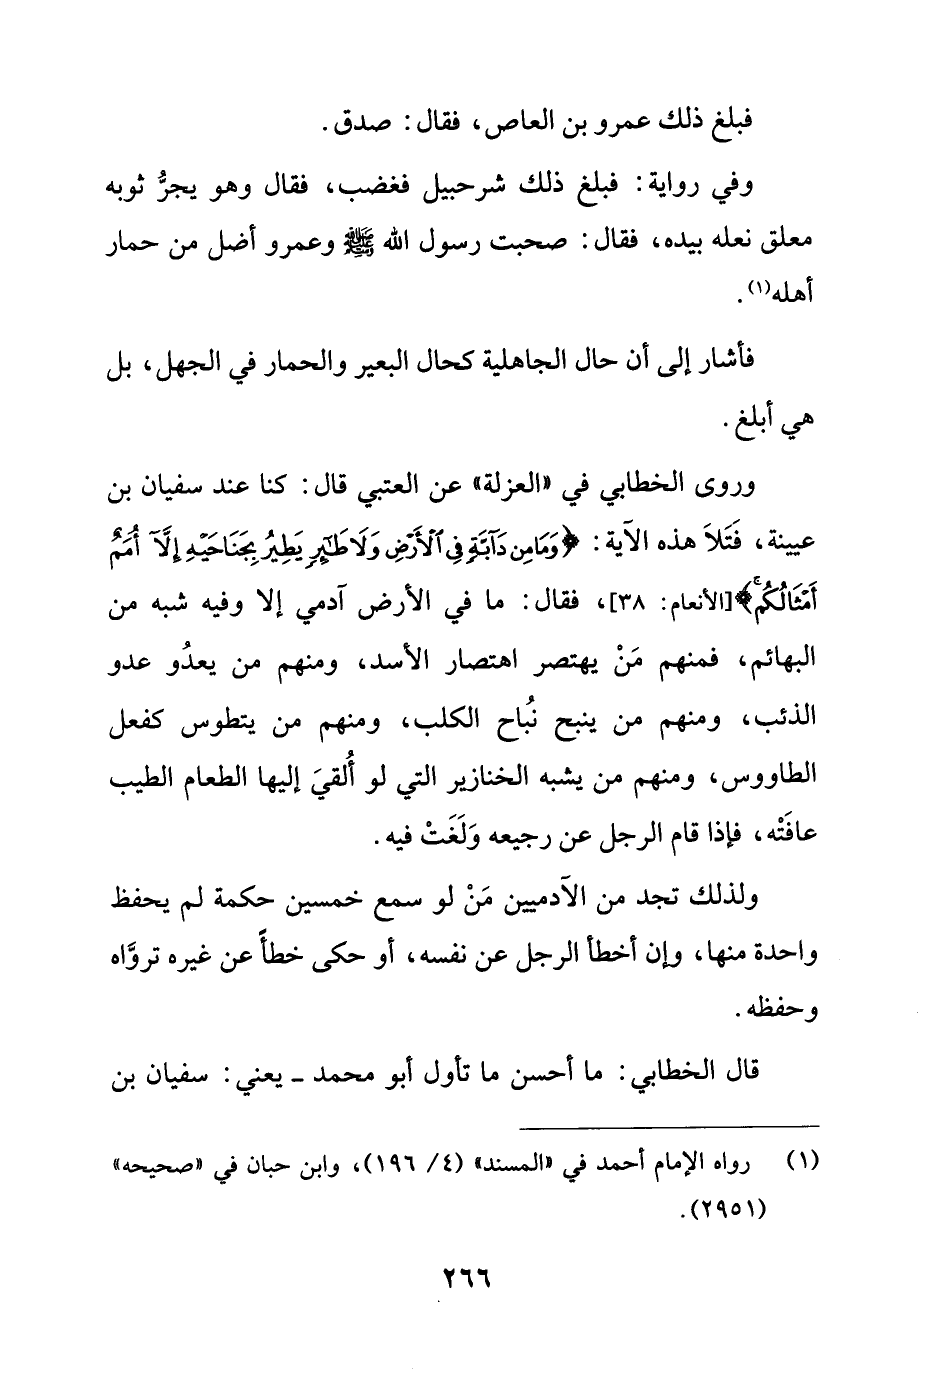 فبلغ ذلك عمرو بن العاص، فقال: صدق.
وفي رواية: فبلغ ذلك شرحبيل فغضب، فقال وهو يجرُّ ثوبه
معلق نعله بيده، فقال: صحبت رسول الله ﷺ وعمرو أضل من حمار
أهله(١).
فأشار إلى أن حال الجاهلية كحال البعير والحمار في الجهل، بل
هي أبلغ.
وروى الخطابي في «العزلة» عن العتبي قال: كنا عند سفيان بن
عيينة، فَتَلاَ هذه الآية: ﴿وَمَا مِن دَآبَّةٍ فِي ٱلْأَرْضِ وَلَا طَٰٓئِرٍ يَطِيرُ بِجَنَاحَيْهِ إِلَّآ أُمَمٌ
أَمْثَالُكُم ۚ﴾[الأنعام: ٣٨]، فقال: ما في الأرض آدمي إلا وفيه شبه من
البهائم، فمنهم مَنْ يهتصر اهتصار الأسد، ومنهم من يعدُو عدو
الذئب، ومنهم من ينبح نُباح الكلب، ومنهم من يتطوس كفعل
الطاووس، ومنهم من يشبه الخنازير التي لو أُلقيَ إليها الطعام الطيب
عافَتْه، فإذا قام الرجل عن رجيعه وَلَغَتْ فيه.
ولذلك تجد من الآدميين مَنْ لو سمع خمسين حكمة لم يحفظ
واحدة منها، وإن أخطأ الرجل عن نفسه، أو حكى خطأً عن غيره تروَّاه
وحفظه.
قال الخطابي: ما أحسن ما تأول أبو محمد ـ يعني: سفيان بن
(١) رواه الإمام أحمد في «المسند» (٤/ ١٩٦)، وابن حبان في «صحيحه»
(٢٩٥١).
٢٦٦